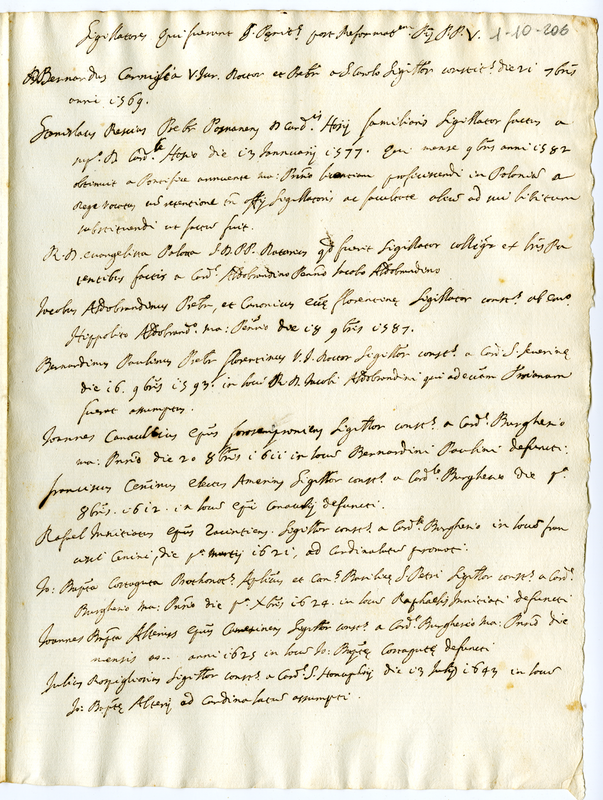 Sigillatores qui fuerunt S. Penit.ę post Reformat.em Pij PP. V. 1-10-206
D. Bernardus Carniglia V. Jur. Doctor et Pręb.r a S. Carlo Sigillr constit.s die 21 7bris
anni 1569.
Stanislaus Rescius Pręb.r Posnanens D. Card.lis Hosij familiaris Sigillator factus a
sup.º D. Card.le Hosio die 13 Jannuarij 1577. qui mense 9bris anni 1582
obtinuit a Pontifice annuente ma: Pęnrio licentiam proficiscendi in Poloniam a
Rege vocatus cum retentione offij Sigillatoris ac facultate alium ad sui libitum
substituendi ut factum fuit.
R. D. Evangelista J. D. PP. Notarius qd fuerit Sigillator ex
factis a Card.li Aldobrandino Pęnrio Jacobo Aldobrandino
Jacobus Aldobrandinus Pręb.r, et Canonicus florentinę Sigillator const.s ab
Hippolito Aldobrand.º ma: Pęnrio die 18 9bris 1587.
Bernardinus Paulinus Pręb.r florentinus V. J. Doctor Sigillr const.s a Card.li S. Severinę
die 16. 9bris 1593. in locum R. D. Jacobi Aldobrandini qui ad
fuerat assumptus.
Joannes Canaulius Epus forosemproniens Sigillor const.s a Card.li Burghesio
ma: Pęnrio die 20 8bris 1611 in locum Bernardini Paulini defuncti.
franciscus Ceninus electus Amerinus Sigillor const.s a Card.le Burghesio die p.ª
8bris. 1612. in locum Epi Canaulij defuncti.
Rafael Innitiatus Epus Sigillor const.s a Card.le Burghesio in locum fran
cisci Cenini, die p.ª martij 1621, ad Cardinalatum promoti.
Jo: Bapta Cortaguta Prothonot.s Aplicus et Can.s Basilicę S. Petri Sigillor const.s a Card.
Burghesio ma: Pęnrio die p.ª Xbris 1624. in locum Raphaelis Innitiati defuncti
Joannes Bapta Alterius Epus Camerinens Sigillor const.s a Card.li Burghesio ma: Pęnrio die
mensis ... anni 1625 in locum Jo: Baptę Cortagutę defuncti
Julius Rospigliosius Sigillor const.s a Card.li S. Honuphrij die 13 Julij 1643 in locum
Jo: Baptę Alterij ad Cardinalatum assumpti.